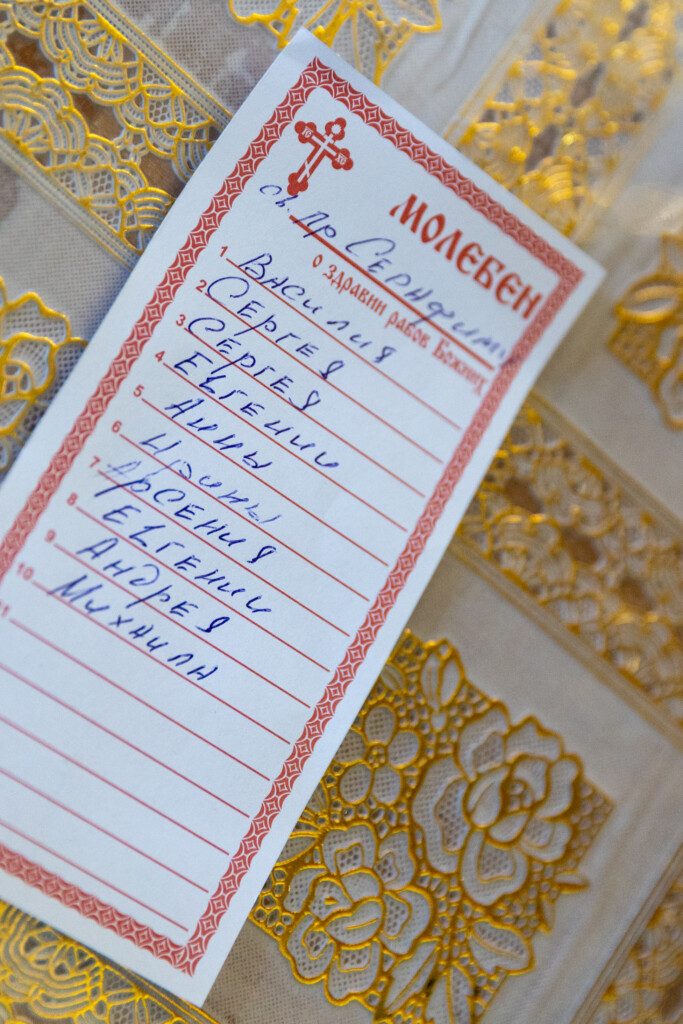 МОЛЕБЕН
св. пр Серафиму
о здравии рабов Божиих
1 Василия
2 Сергея
3 Сергея
4 Евгении
5 Анны
6 Ирины
7 Арсения
8 Евгении
9 Андрея
10 Михаила
11